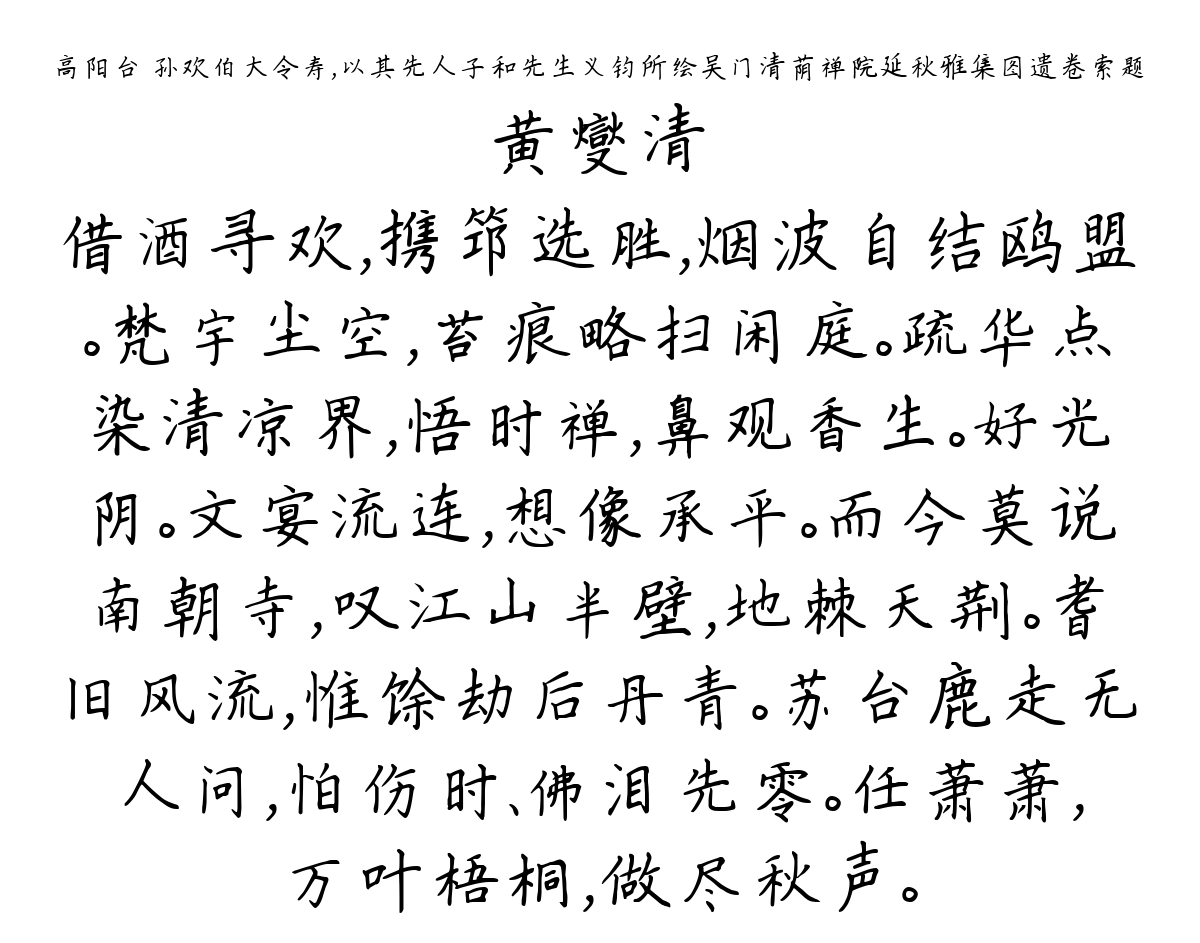 高阳台 孙欢伯大令寿,以其先人子和先生义钧所绘吴门清荫禅院延秋雅集图遗卷索题
黄燮清
借酒寻欢,携筇选胜,烟波自结鸥盟
。梵宇尘空,苔痕略扫闲庭。疏华点
染清凉界,悟时禅,鼻观香生。好光
阴。文宴流连,想像承平。而今莫说
南朝寺,叹江山半壁,地棘天荆。耆
旧风流,惟馀劫后丹青。苏台鹿走无
人问,怕伤时、佛泪先零。任萧萧,
万叶梧桐,做尽秋声。